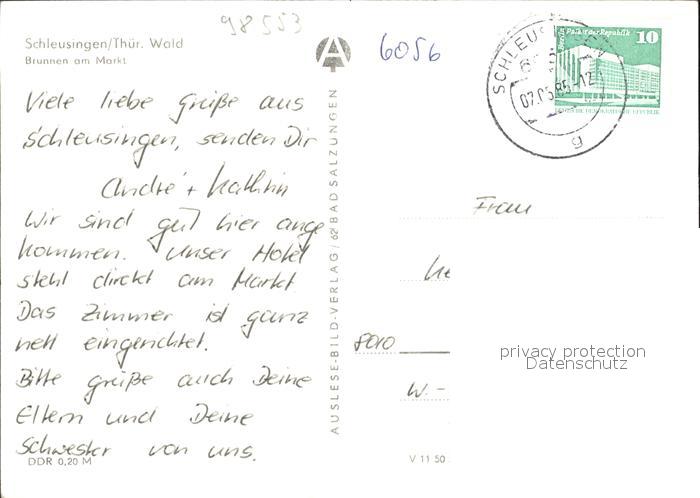 98553
Schleusingen/Thür. Wald
Brunnen am Markt
6056
SCHLEUSINGEN
07.05.85-12
g
Berlin, Palast der Republik 10
DEUTSCHE DEMOKRATISCHE REPUBLIK
Viele liebe Grüße aus
Schleusingen, senden Dir
André + Kathrin
Wir sind gut hier ange
kommen. Unser Hotel
steht direkt am Markt
Das Zimmer ist ganz
nett eingerichtet.
Bitte grüße auch Deine
Eltern und Deine
Schwester von uns.
DDR 0,20 M
AUSLESE-BILD-VERLAG / 62 BAD SALZUNGEN
Frau
8010
W.-
V 11 50
privacy protection
Datenschutz